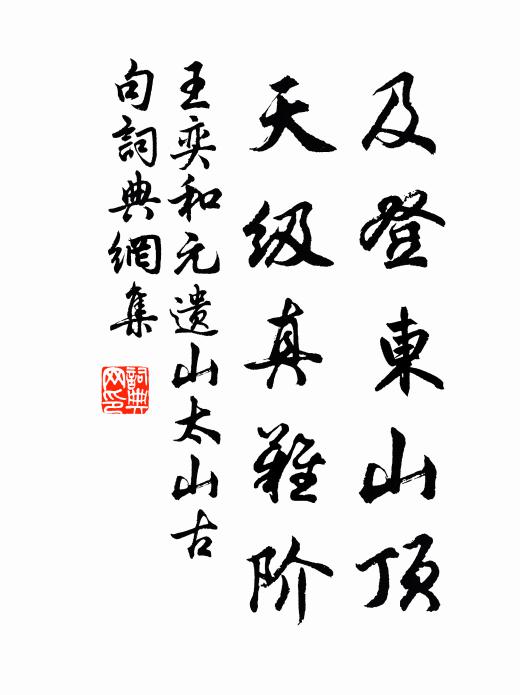 及登東山顶
天级真難阶
王奕和元遗山太山古
句詞典網集
詞典网印